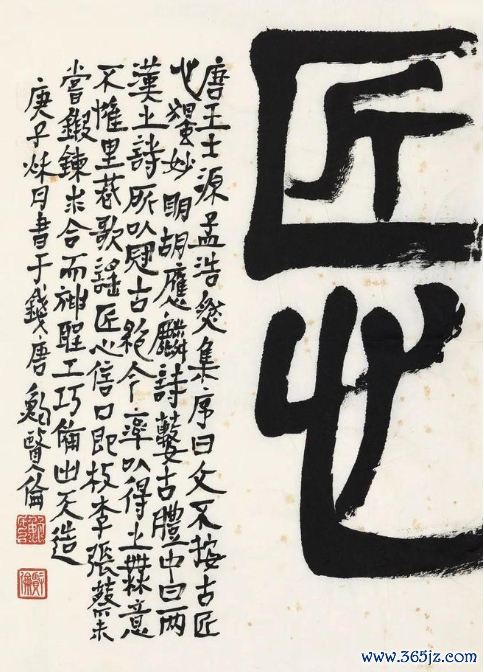 匠心
唐王士源孟浩然集序曰文不按古匠
心獨妙明胡應麟詩藪古體中曰兩
漢之詩所以冠古絕今率以得之無意
不惟里巷歌謠匠心信口即枚李張蔡未
嘗鍛鍊求合而神聖工巧備出天造
庚子秋月書于錢唐鮑賢倫
www.365jz.com